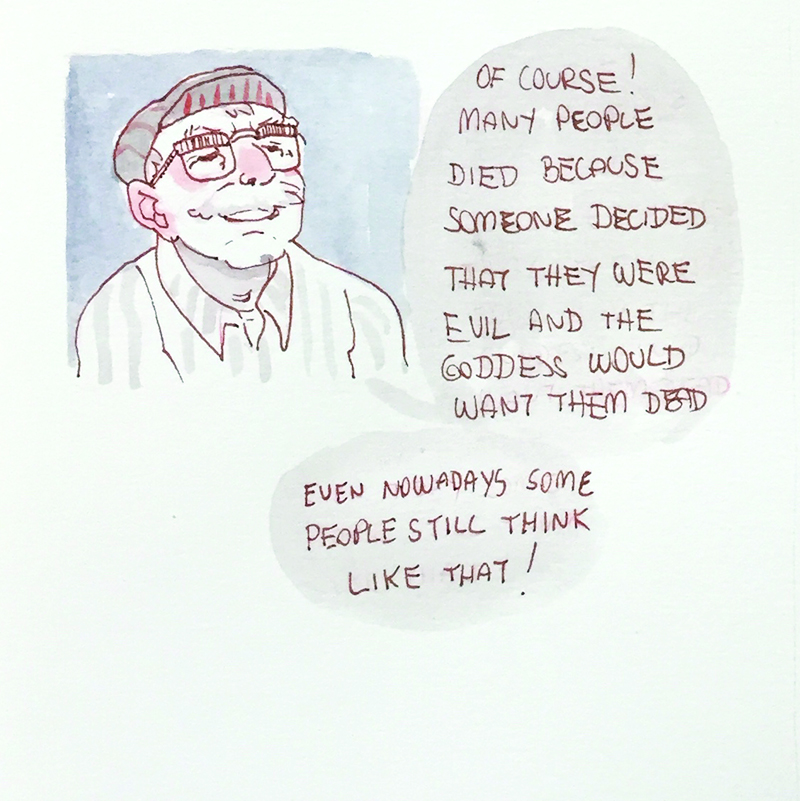 OF COURSE!
MANY PEOPLE
DIED BECAUSE
SOMEONE DECIDED
THAT THEY WERE
EVIL AND THE
GODDESS WOULD
WANT THEM DEAD
EVEN NOWADAYS SOME
PEOPLE STILL THINK
LIKE THAT!